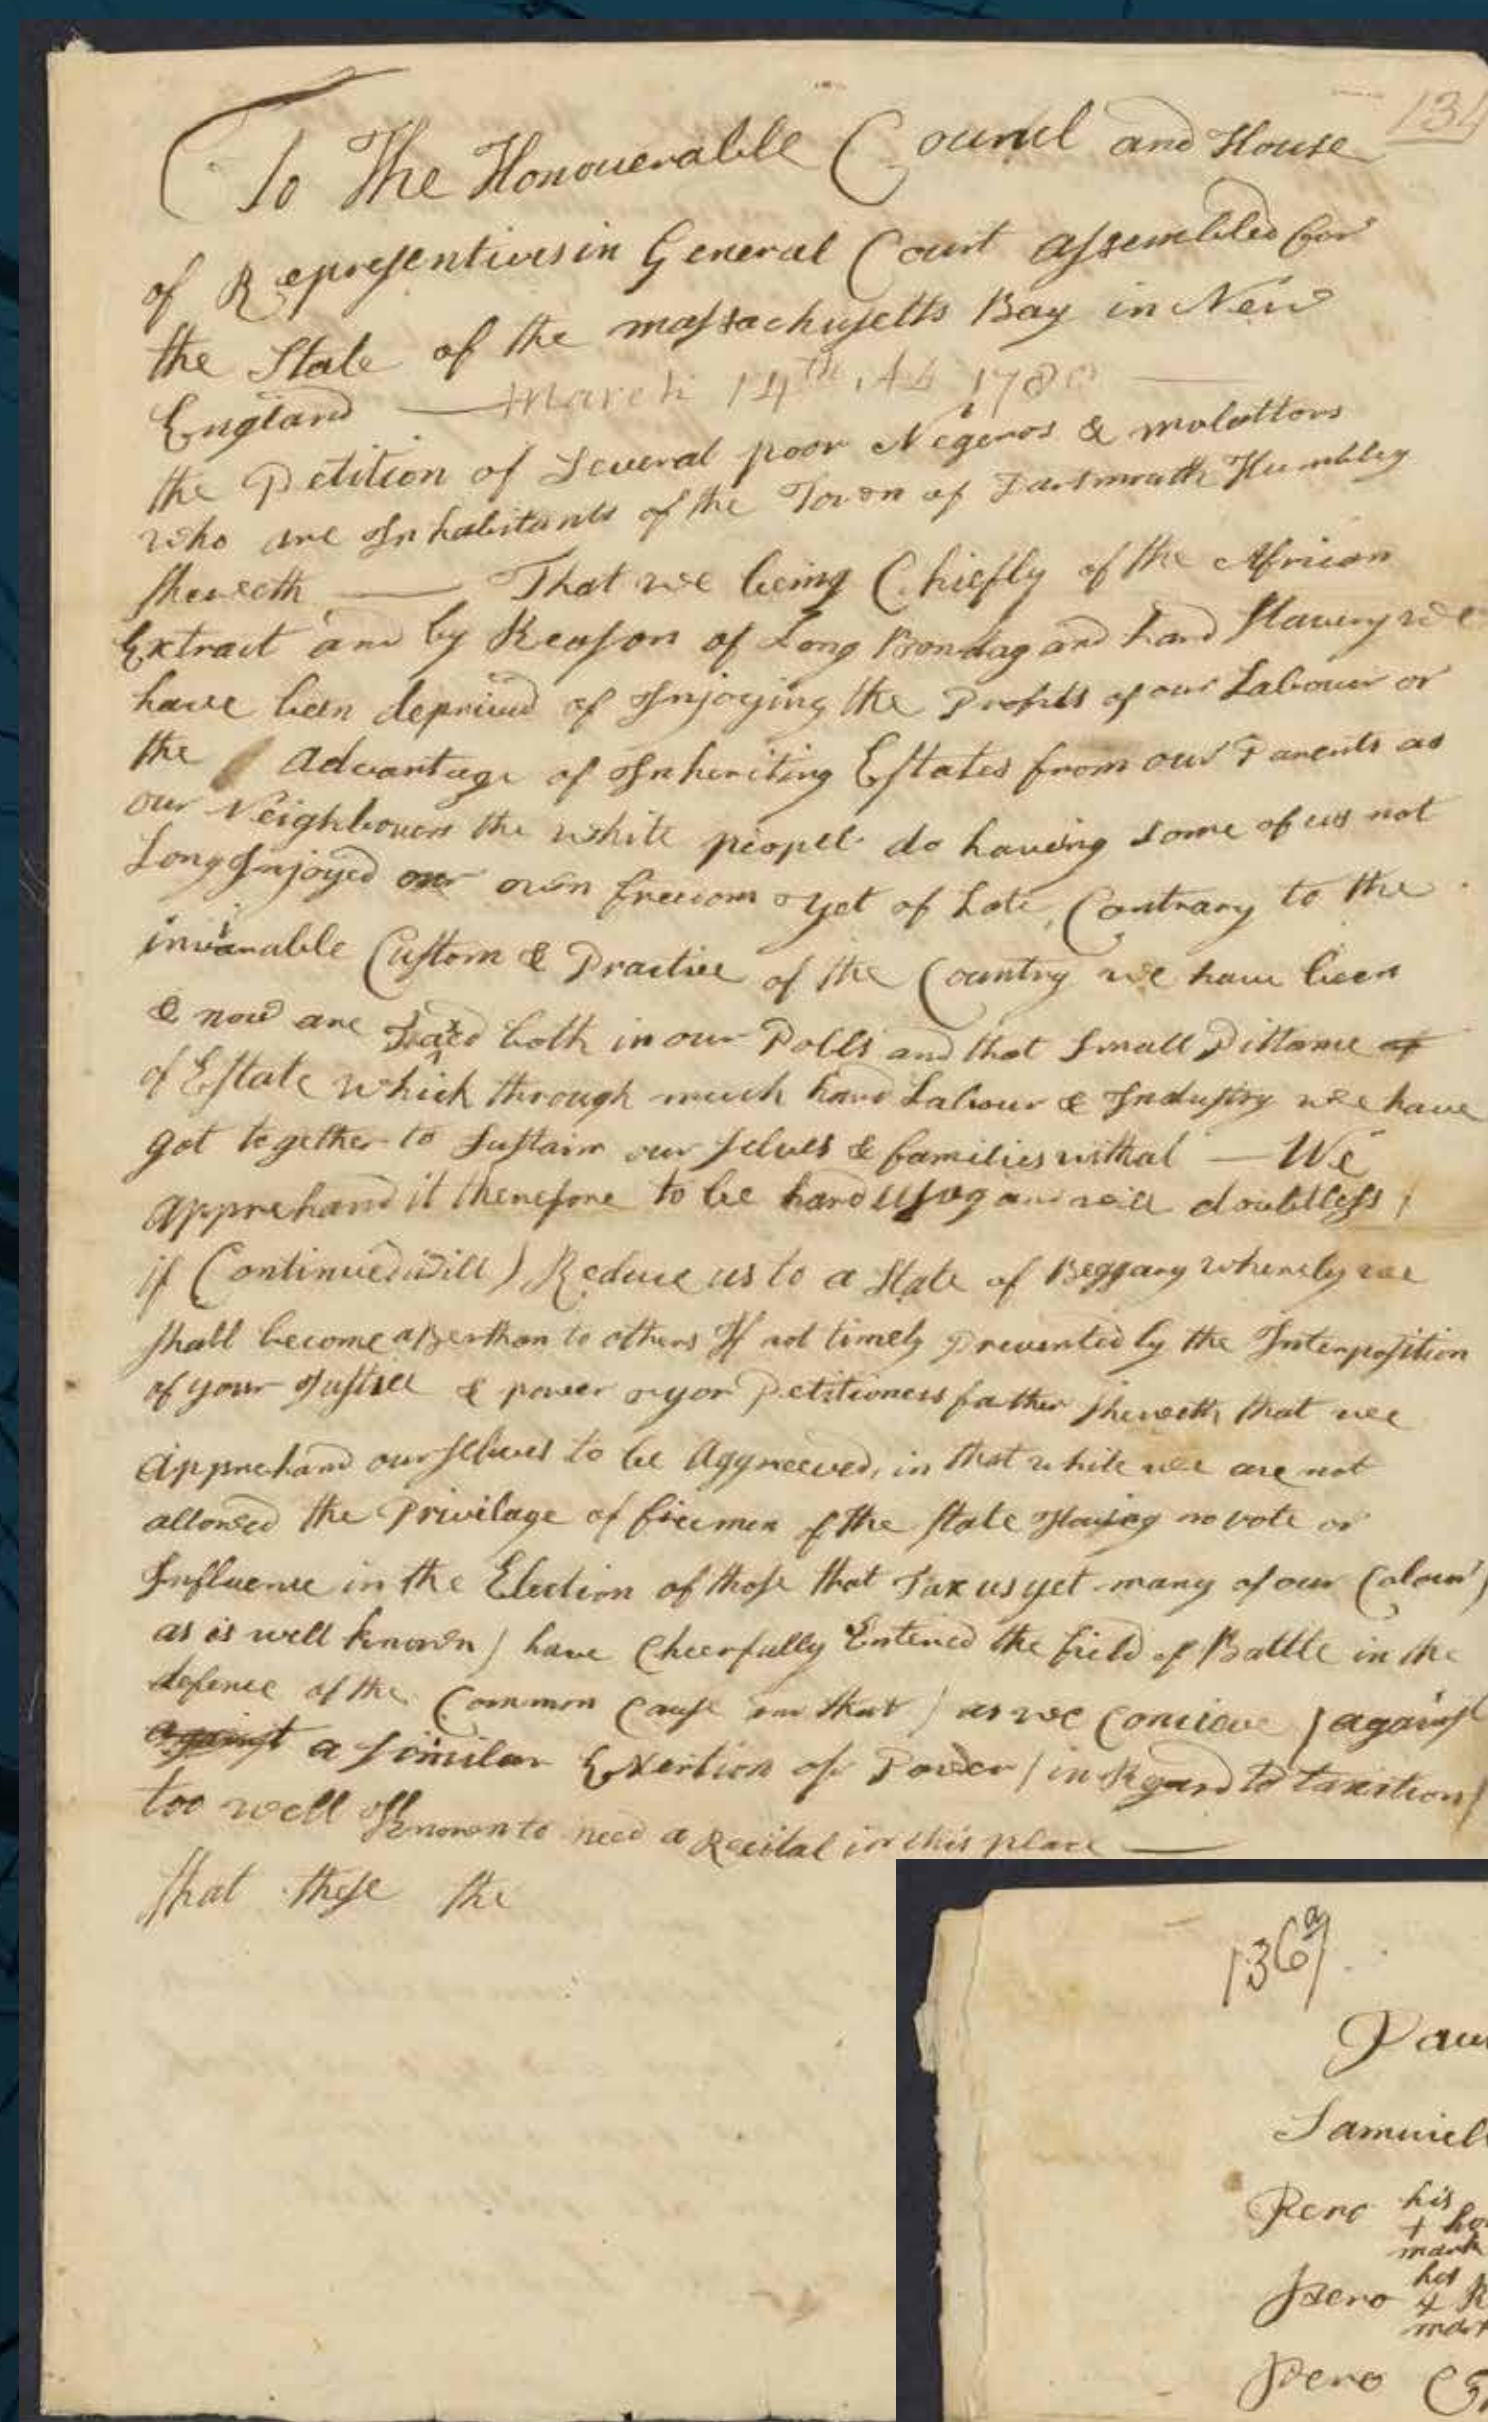 134
To The Honouerable Councel and House
of Representives in General Court assembled for
the State of the massachusetts Bay in New
England — March 14th AD 1780 —
the Petition of Several poor Negeros & molattoes
who are Inhabitants of the Town of Dartmouth Humbley
sheweth — That we being Chiefly of the African
Extract and by Reason of Long Bondag and hard Slavery we
have been deprived of Injoying the Profits of our Labouer or
the Advantage of Inheriting Estates from our Parents as
our Neighbouers the white peopel do having some of us not
Long Injoyed our own freedom & yet of Late, Contrary to the
invariable Custom & Practice of the Country we have been
& now are Taxed both in our Polls and that small Pittance of
of Estate which through much hard Labour & Industry we have
got together to Sustain our selves & families withal — We
apprehand it therefore to be hard usag and will doubtless /
if Continued will ) Reduce us to a State of Beggary whereby we
shall become a Berthan to others If not timely prevented by the Interposition
of your Justice & power & yor Petitioners farther sheweth that we
apprehand ourselves to be Aggreeved, in that while we are not
allowed the Privilage of freemen of the state Having no vote or
Influence in the Election of those that Tax us yet many of our Colour /
as is well known ) have Cheerfully Entered the field of Battle in the
defence of the Common Cause and that ) as we conceive / against
against a similar Exertion of Power / in Regard to taxation /
too well Known to need a Recital in this place —
that these the
136a
Samuiel
Pero his
mark
Pero his
Pero